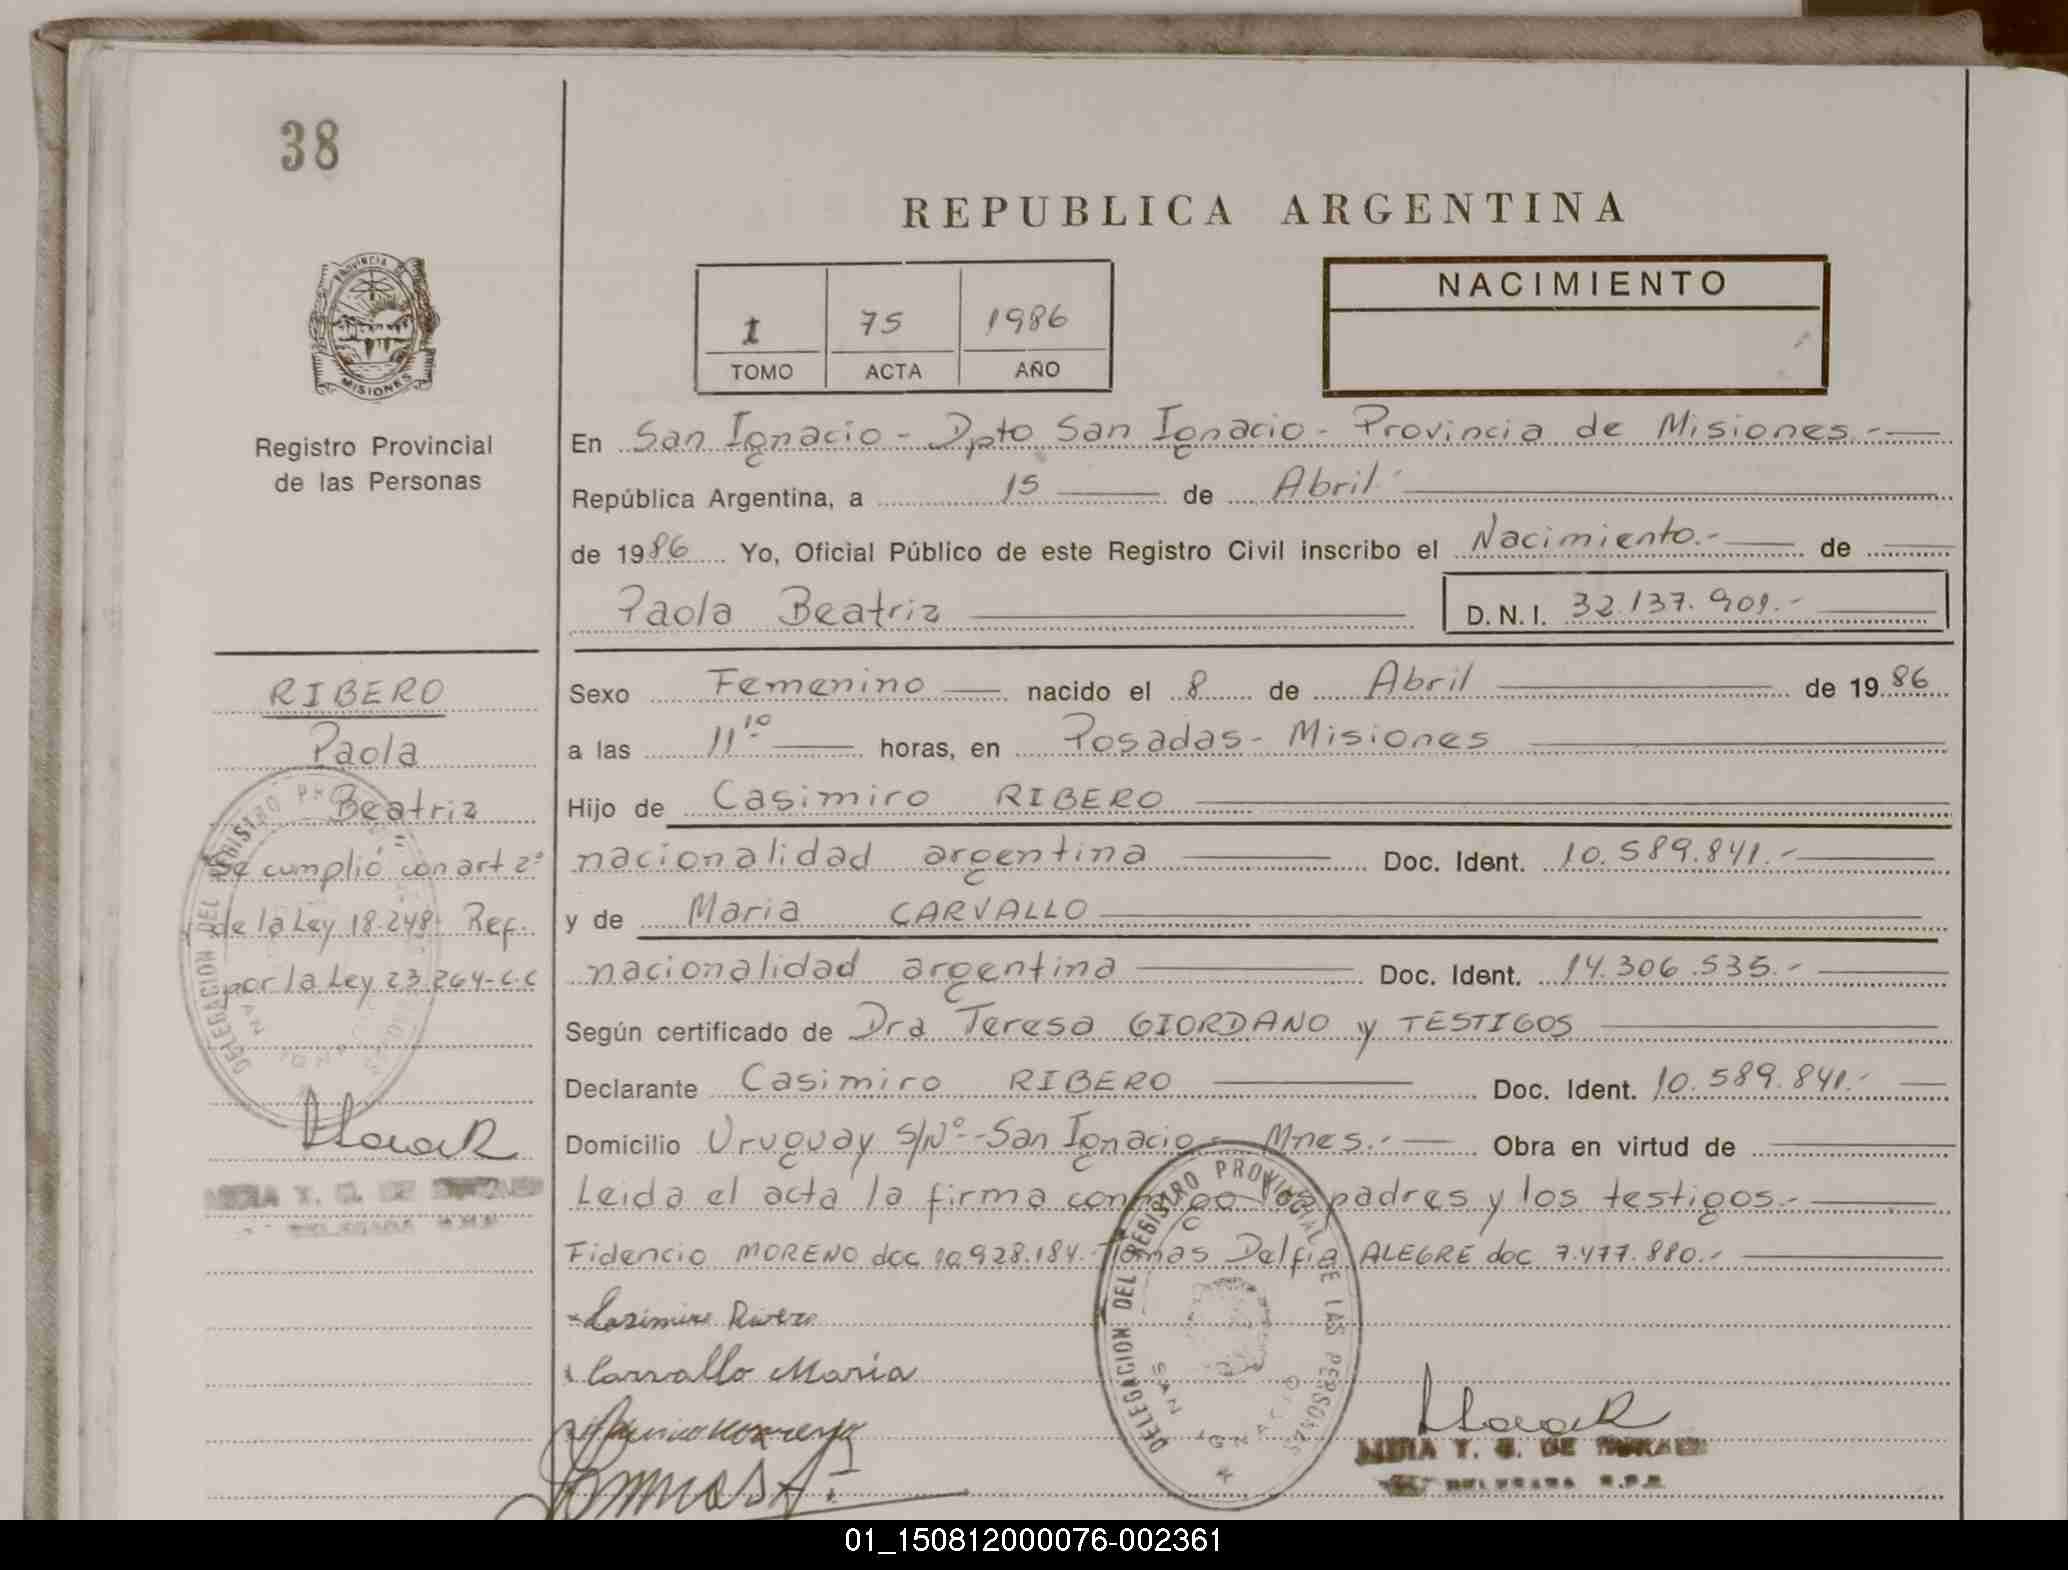 38
REPUBLICA ARGENTINA
PROVINCIA DE
MISIONES
NACIMIENTO
1 75 1986
TOMO ACTA AÑO
Registro Provincial
de las Personas
En San Ignacio - Dpto San Ignacio - Provincia de Misiones.-
República Argentina, a 15 de Abril
de 1986 Yo, Oficial Público de este Registro Civil inscribo el Nacimiento.- de
Paola Beatriz D.N.I. 32.137.901.-
RIBERO
Paola
Beatriz
Se cumplió con art 2º
de la Ley 18.248 Ref.
por la Ley 23.264-C.C
Sexo Femenino nacido el 8 de Abril de 1986
a las 11 10 horas, en Posadas - Misiones
Hijo de Casimiro RIBERO
nacionalidad argentina Doc. Ident. 10.589.841.-
y de Maria CARVALLO
nacionalidad argentina Doc. Ident. 14.306.535.-
Según certificado de Dra Teresa GIORDANO y TESTIGOS
Declarante Casimiro RIBERO Doc. Ident. 10.589.841.-
Domicilio Uruguay S/Nº - San Ignacio - Mnes.- Obra en virtud de
Leida el acta la firma conmigo los padres y los testigos.-
Fidencio MORENO doc 10.928.184.- Tomas Delfin ALEGRE doc 7.477.880.-
Casimiro Rivero
Carvallo Maria
DELEGACION DEL REGISTRO PROVINCIAL DE LAS PERSONAS
SAN IGNACIO
DELEGACION DEL REGISTRO PRO
SAN IGNACIO
T. G. DE
DELEGADA
01_150812000076-002361